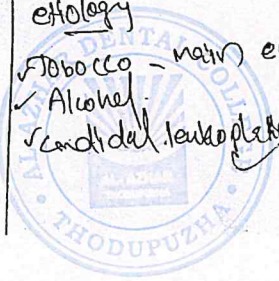 etiology
✓Tobocco - main e
✓ Alcohol.
✓ candidal leukoplak
AL AZHAR DENTAL COLLEGE
THODUPUZHA